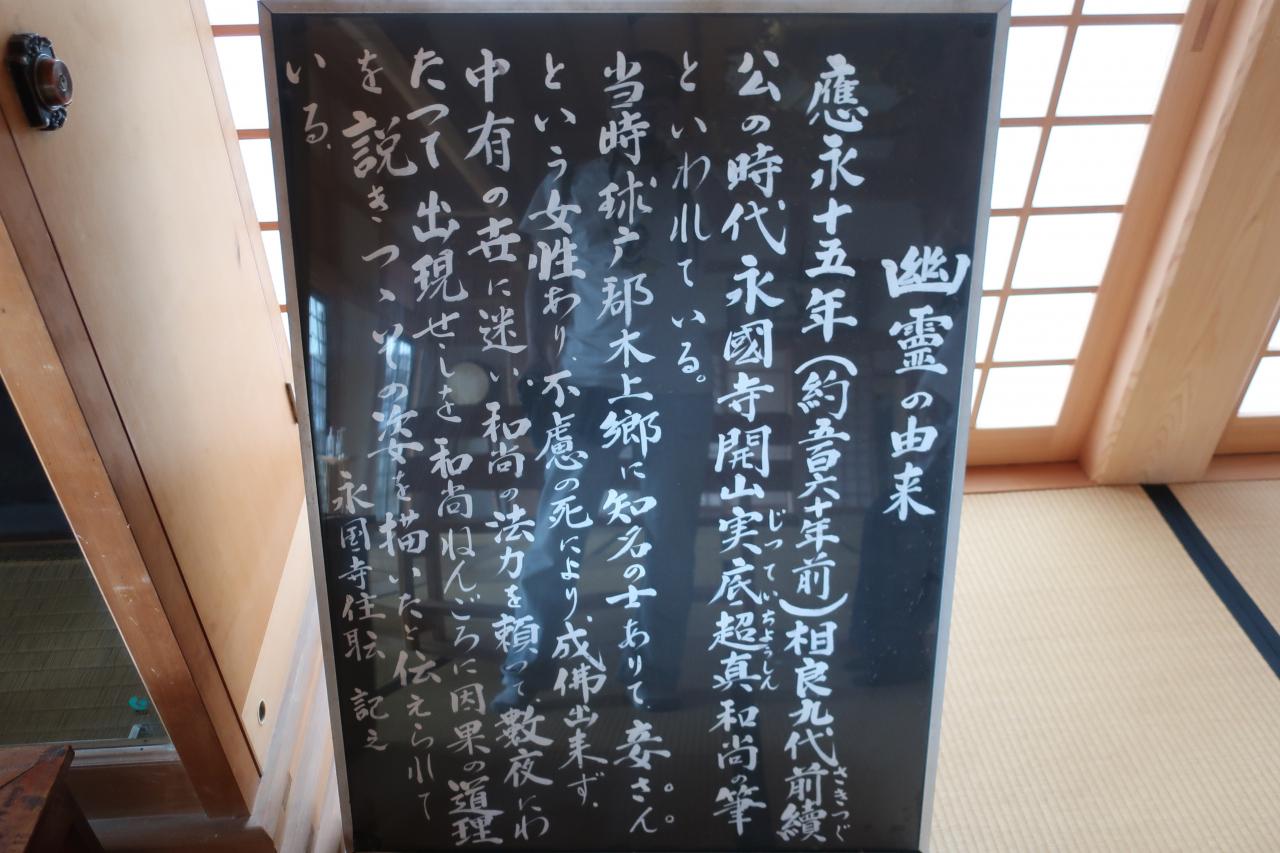 幽霊の由来
應永十五年(約五百六十年前)相良九代前續
さきつぐ
公の時代永國寺開山実底超真和尚の筆
じっていちょうしん
といわれている。
当時球广郡木上郷に知名の士ありて、妾さん
という女性あり、不慮の死により、成佛出来ず、
中有の世に迷い、和尚の法力を頼って、数夜にわ
たって出現せしを和尚ねんごろに因果の道理
を説きつゝその姿を描いたと伝えられて
いる、
永国寺住职 記之